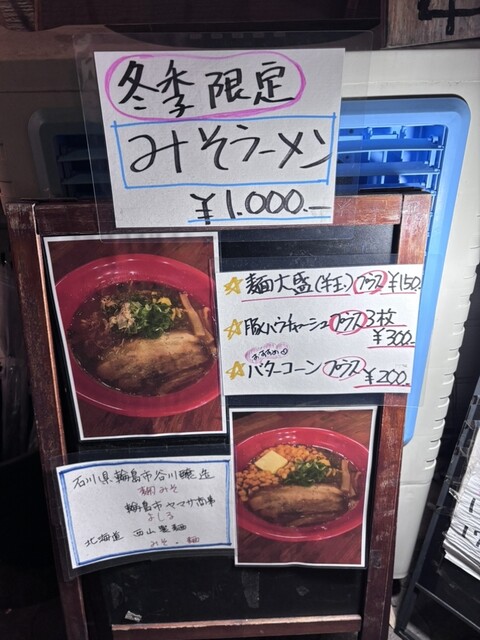 冬季限定
みそラーメン
¥1.000.-
麺大盛(半玉)プラス¥150.
豚バラチャーシュプラス3枚
¥300.-
おすすめ
バターコーンプラス
¥200.
石川県輪島市谷川醸造
糀みそ
輪島市ヤマサ商事
よしる
北海道 西山製麺
みそ・麺